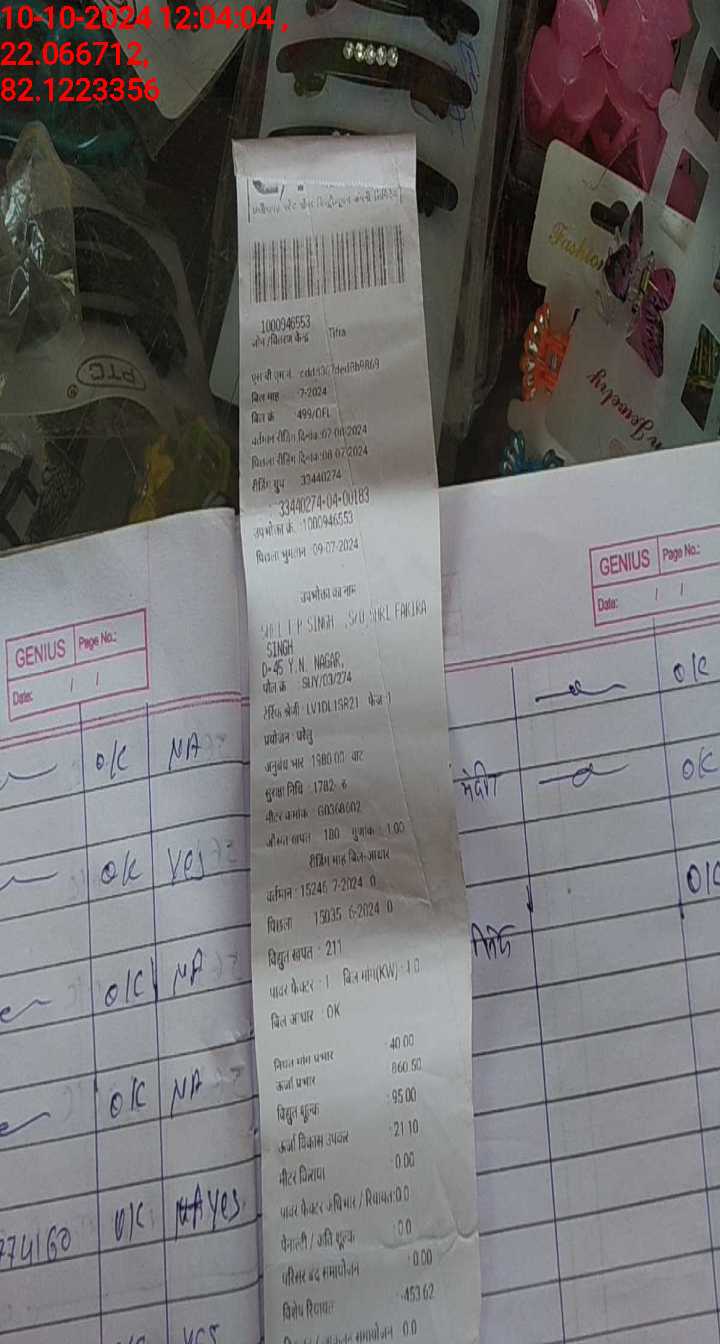 10-10-2024 12:04:04 ,
22.066712,
82.1223356
Fashion
PTC
Jewelry
1000946553
जोन /वितरण केन्द्र Tifra
बिल माह :7-2024
बिल क्रं :499/OFL
वर्तमान रीडिंग दिनांक:07-08-2024
पिछला रीडिंग दिनांक:08-07-2024
रीडिंग ग्रुप 33440274
33440274-04-00183
उपभोक्ता क्रं. :1000946553
पिछला भुगतान :09-07-2024
उपभोक्ता का नाम
SINGH ,S/O SHRI FAKIRA
SINGH
D-45 Y.N. NAGAR,
पोल क्रं : SLIY/03/274
टैरिफ श्रेणी :LV1DL1SR21 फेज:1
प्रयोजन :घरेलु
अनुबंध भार 1980.00 वाट
सुरक्षा निधि :1782 रु
मीटर क्रमांक :G0368602
औसत खपत 180 गुणांक : 1.00
रीडिंग माह बिल-आधार
वर्तमान :15246 7-2024 0
पिछला 15035 6-2024 0
विद्युत खपत : 211
पावर फैक्टर : 1 बिल मांग(KW) :1.0
बिल आधार : OK
नियत मांग प्रभार :40.00
ऊर्जा प्रभार 860.50
विद्युत शुल्क :95.00
ऊर्जा विकास उपकर :21.10
मीटर किराया :0.00
पावर फैक्टर अधिभार / रियायत:0.0
पेनाल्टी / अति शुल्क :0.0
परिसर बंद समायोजन :0.00
विशेष रियायत -453.62
समायोजन 0.0
GENIUS Page No.:
Date: / /
O/C NA
OK Yes
O/C NA
O/C NA
774160 O/C NA Yes
Yes
GENIUS Page No.:
Date: / /
O/C
O/C
O/C